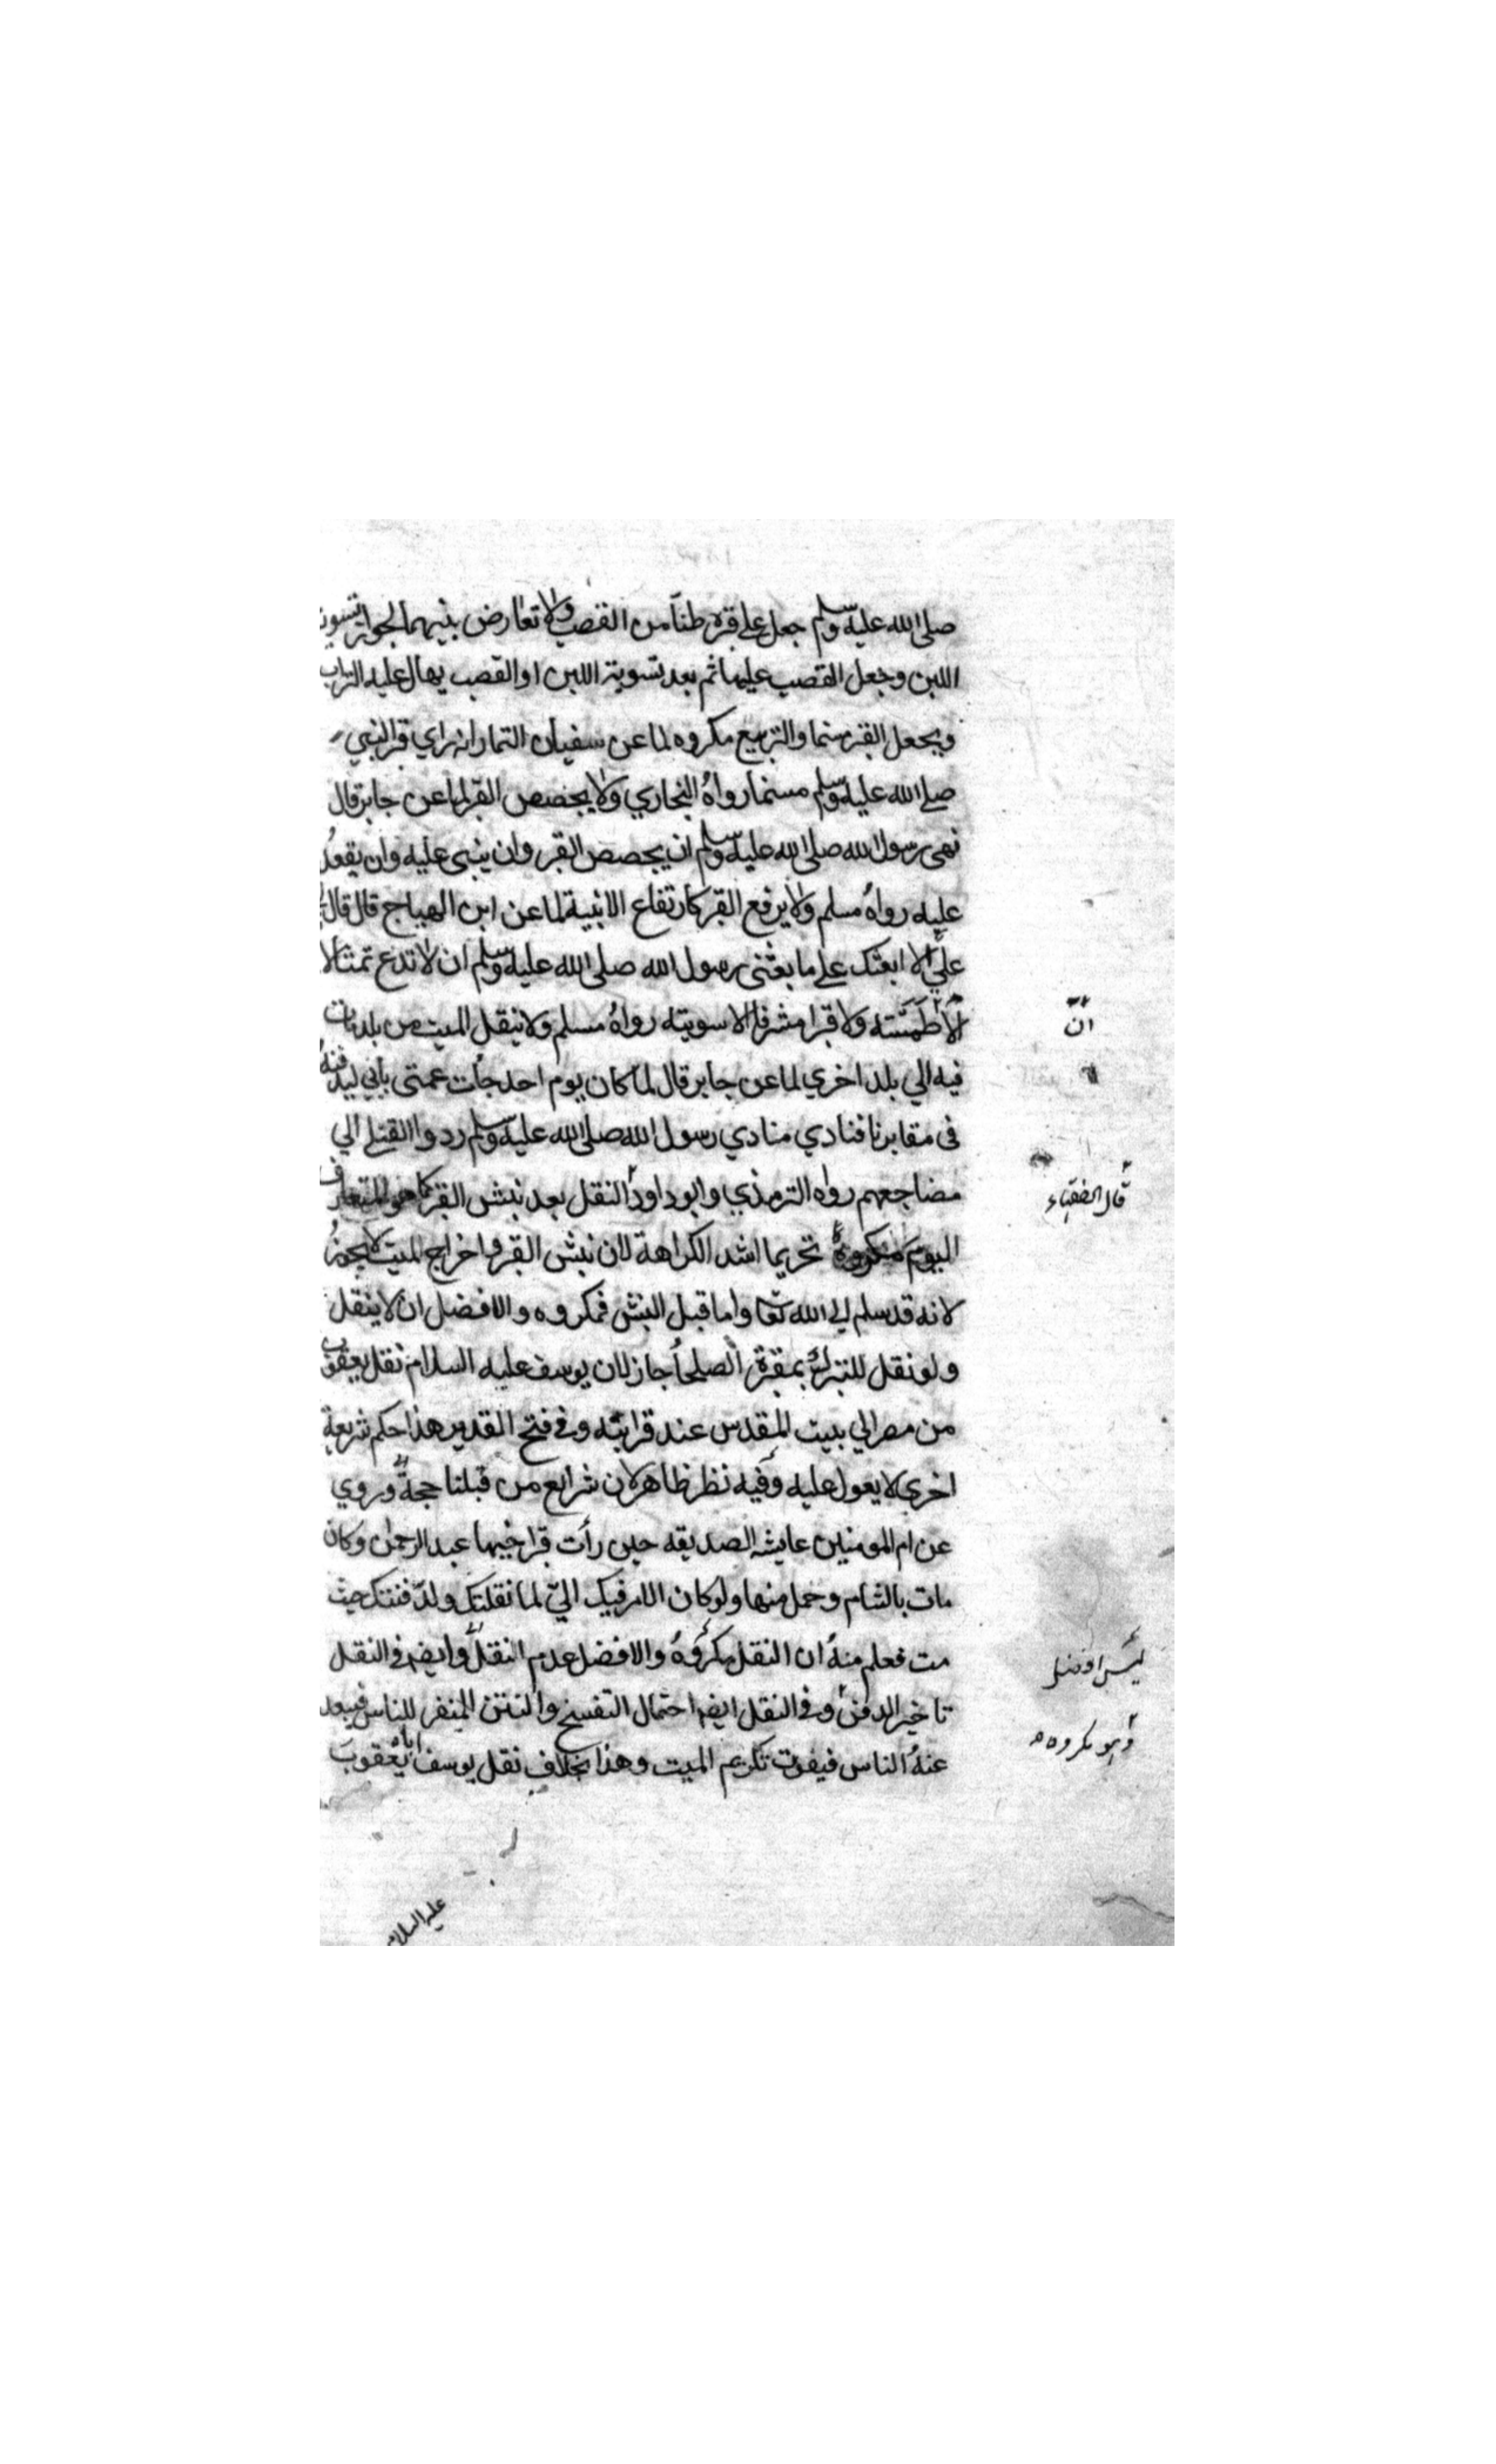 صلى الله عليه وسلم جعل على قبره طناً من القصب ولا تعارض بينهما لجواز تسوية
اللبن وجعل القصب عليها ثم بعد تسوية اللبن او القصب يهال عليه التراب
ويجعل القبر مسنما والتربيع مكروه لما عن سفيان التمار انه راي قبر النبي
صلى الله عليه وسلم مسنما رواهُ البخاري ولا يجصص القبر لما عن جابر قال
نهى رسول الله صلى الله عليه وسلم ان يجصص القبر وان يبنى عليه وان يقعد
عليه رواهُ مسلم ولا يرفع القبر كارتفاع الابنية لما عن ابن الهياج قال قال
عليّ الا ابعثك على ما بعثنى رسول الله صلى الله عليه وسلم ان لا تدع تمثالا
الا طمسته ولا قبرا مشرفا الا سويته رواهُ مسلم ولا ينقل الميت من بلد مات
فيه الي بلد اخري لما عن جابر قال لما كان يوم احد جأت عمتى بأبي ليدفنهُ
فى مقابرنا فنادي منادي رسول الله صلى الله عليه وسلم ردوا القتلى الي
مضاجعهم رواه الترمذي وابو داود النقل بعد نبش القبر كما هو المتعارف
اليوم مكروهٌ تحريما اشد الكراهة لان نبش القبر واخراج الميت لا يجوز
لانه قد سلم الى الله تعا واما قبل النبش فمكروه والافضل ان لا ينقل
ولو نقل للتبرك بمقبرة الصلحأ جاز لان يوسف عليه السلام نقل يعقوب
من مصر الي بيت المقدس عند قرابته وفى فتح القدير هذا حكم شريعة
اخري لا يعول عليه وفيه نظر ظاهر لان شرايع من قبلنا حجة وروي
عن ام المومنين عايشه الصديقه حين رأت قبر اخيها عبد الرحمن وكان
مات بالشام وحمل منها ولو كان الامر فيك اليّ لما نقلتك ولدفنتك حيث
مت فعلم منهُ ان النقل مكروهٌ والافضل عدم النقل وايضا فى النقل
تاخير الدفن وفى النقل ايضا احتمال التفسخ والنتن المنفر للناس فيبعد
عنهُ الناس فيفوت تكريم الميت وهذا بخلاف نقل يوسف اباه يعقوب
عليه السلام
انّ
قال الفقهاء
ليس افضل
وهو مكروه